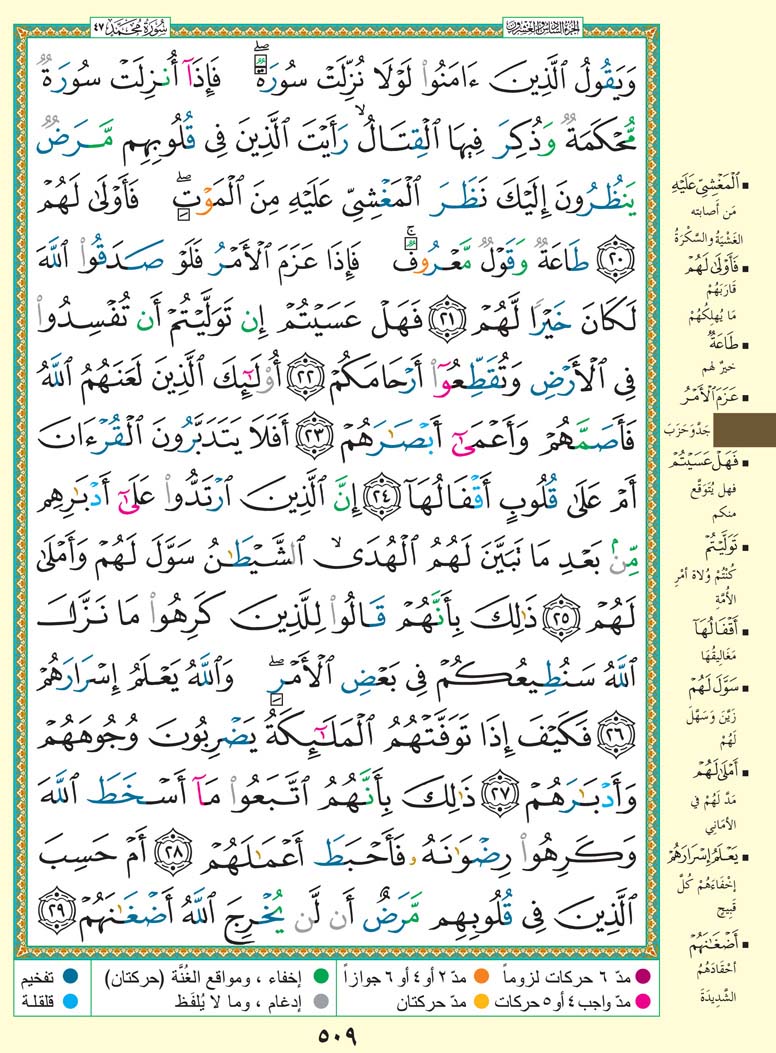 سُورَةُ مُحَمَّد ٤٧
الجزء السادس والعشرون
وَيَقُولُ ٱلَّذِينَ ءَامَنُوا۟ لَوْلَا نُزِّلَتْ سُورَةٌۖ فَإِذَآ أُنزِلَتْ سُورَةٌ
مُّحْكَمَةٌ وَذُكِرَ فِيهَا ٱلْقِتَالُۙ رَأَيْتَ ٱلَّذِينَ فِى قُلُوبِهِم مَّرَضٌ
يَنظُرُونَ إِلَيْكَ نَظَرَ ٱلْمَغْشِىِّ عَلَيْهِ مِنَ ٱلْمَوْتِۖ فَأَوْلَىٰ لَهُمْ
﴿٢٠﴾ طَاعَةٌ وَقَوْلٌ مَّعْرُوفٌۚ فَإِذَا عَزَمَ ٱلْأَمْرُ فَلَوْ صَدَقُوا۟ ٱللَّهَ
لَكَانَ خَيْرًا لَّهُمْ ﴿٢١﴾ فَهَلْ عَسَيْتُمْ إِن تَوَلَّيْتُمْ أَن تُفْسِدُوا۟
فِى ٱلْأَرْضِ وَتُقَطِّعُوٓا۟ أَرْحَامَكُمْ ﴿٢٢﴾ أُو۟لَٰٓئِكَ ٱلَّذِينَ لَعَنَهُمُ ٱللَّهُ
فَأَصَمَّهُمْ وَأَعْمَىٰٓ أَبْصَٰرَهُمْ ﴿٢٣﴾ أَفَلَا يَتَدَبَّرُونَ ٱلْقُرْءَانَ
أَمْ عَلَىٰ قُلُوبٍ أَقْفَالُهَآ ﴿٢٤﴾ إِنَّ ٱلَّذِينَ ٱرْتَدُّوا۟ عَلَىٰٓ أَدْبَٰرِهِم
مِّنۢ بَعْدِ مَا تَبَيَّنَ لَهُمُ ٱلْهُدَىۙ ٱلشَّيْطَٰنُ سَوَّلَ لَهُمْ وَأَمْلَىٰ
لَهُمْ ﴿٢٥﴾ ذَٰلِكَ بِأَنَّهُمْ قَالُوا۟ لِلَّذِينَ كَرِهُوا۟ مَا نَزَّلَ
ٱللَّهُ سَنُطِيعُكُمْ فِى بَعْضِ ٱلْأَمْرِۖ وَٱللَّهُ يَعْلَمُ إِسْرَارَهُمْ
﴿٢٦﴾ فَكَيْفَ إِذَا تَوَفَّتْهُمُ ٱلْمَلَٰٓئِكَةُ يَضْرِبُونَ وُجُوهَهُمْ
وَأَدْبَٰرَهُمْ ﴿٢٧﴾ ذَٰلِكَ بِأَنَّهُمُ ٱتَّبَعُوا۟ مَآ أَسْخَطَ ٱللَّهَ
وَكَرِهُوا۟ رِضْوَٰنَهُۥ فَأَحْبَطَ أَعْمَٰلَهُمْ ﴿٢٨﴾ أَمْ حَسِبَ
ٱلَّذِينَ فِى قُلُوبِهِم مَّرَضٌ أَن لَّن يُخْرِجَ ٱللَّهُ أَضْغَٰنَهُمْ ﴿٢٩﴾
▪ ٱلْمَغْشِىِّ عَلَيْهِ
مَن أصابته
الغَشْيَةُ والسَّكْرَةُ
▪ فَأَوْلَىٰ لَهُمْ
قَارَبَهُمْ
مَا يُهلِكُهُمْ
▪ طَاعَةٌ
خيرٌ لهم
▪ عَزَمَ ٱلْأَمْرُ
جَدَّ وَحَزَبَ
▪ فَهَلْ عَسَيْتُمْ
فهل يُتَوقَّع
منكم
▪ تَوَلَّيْتُمْ
كُنْتُمْ وُلاة أمْرِ
الأُمَّة
▪ أَقْفَالُهَآ
مَغَالِيقُهَا
▪ سَوَّلَ لَهُمْ
زَيَّنَ وَسَهَّلَ
لَهُمْ
▪ أَمْلَىٰ لَهُمْ
مَدَّ لَهُمْ في
الأمَانِي
▪ يَعْلَمُ إِسْرَارَهُمْ
إخْفَاءَهُمْ كُلَّ
قَبِيحٍ
▪ أَضْغَٰنَهُمْ
أحْقَادَهُمُ
الشَّدِيدَةَ
مدّ ٦ حركات لزوماً
مدّ ٢ أو ٤ أو ٦ جوازاً
إخفاء ، ومواقع الغُنَّة (حركتان)
تفخيم
مدّ واجب ٤ أو ٥ حركات
مدّ حركتان
إدغام ، وما لا يُلفَظ
قلقلة
٥٠٩